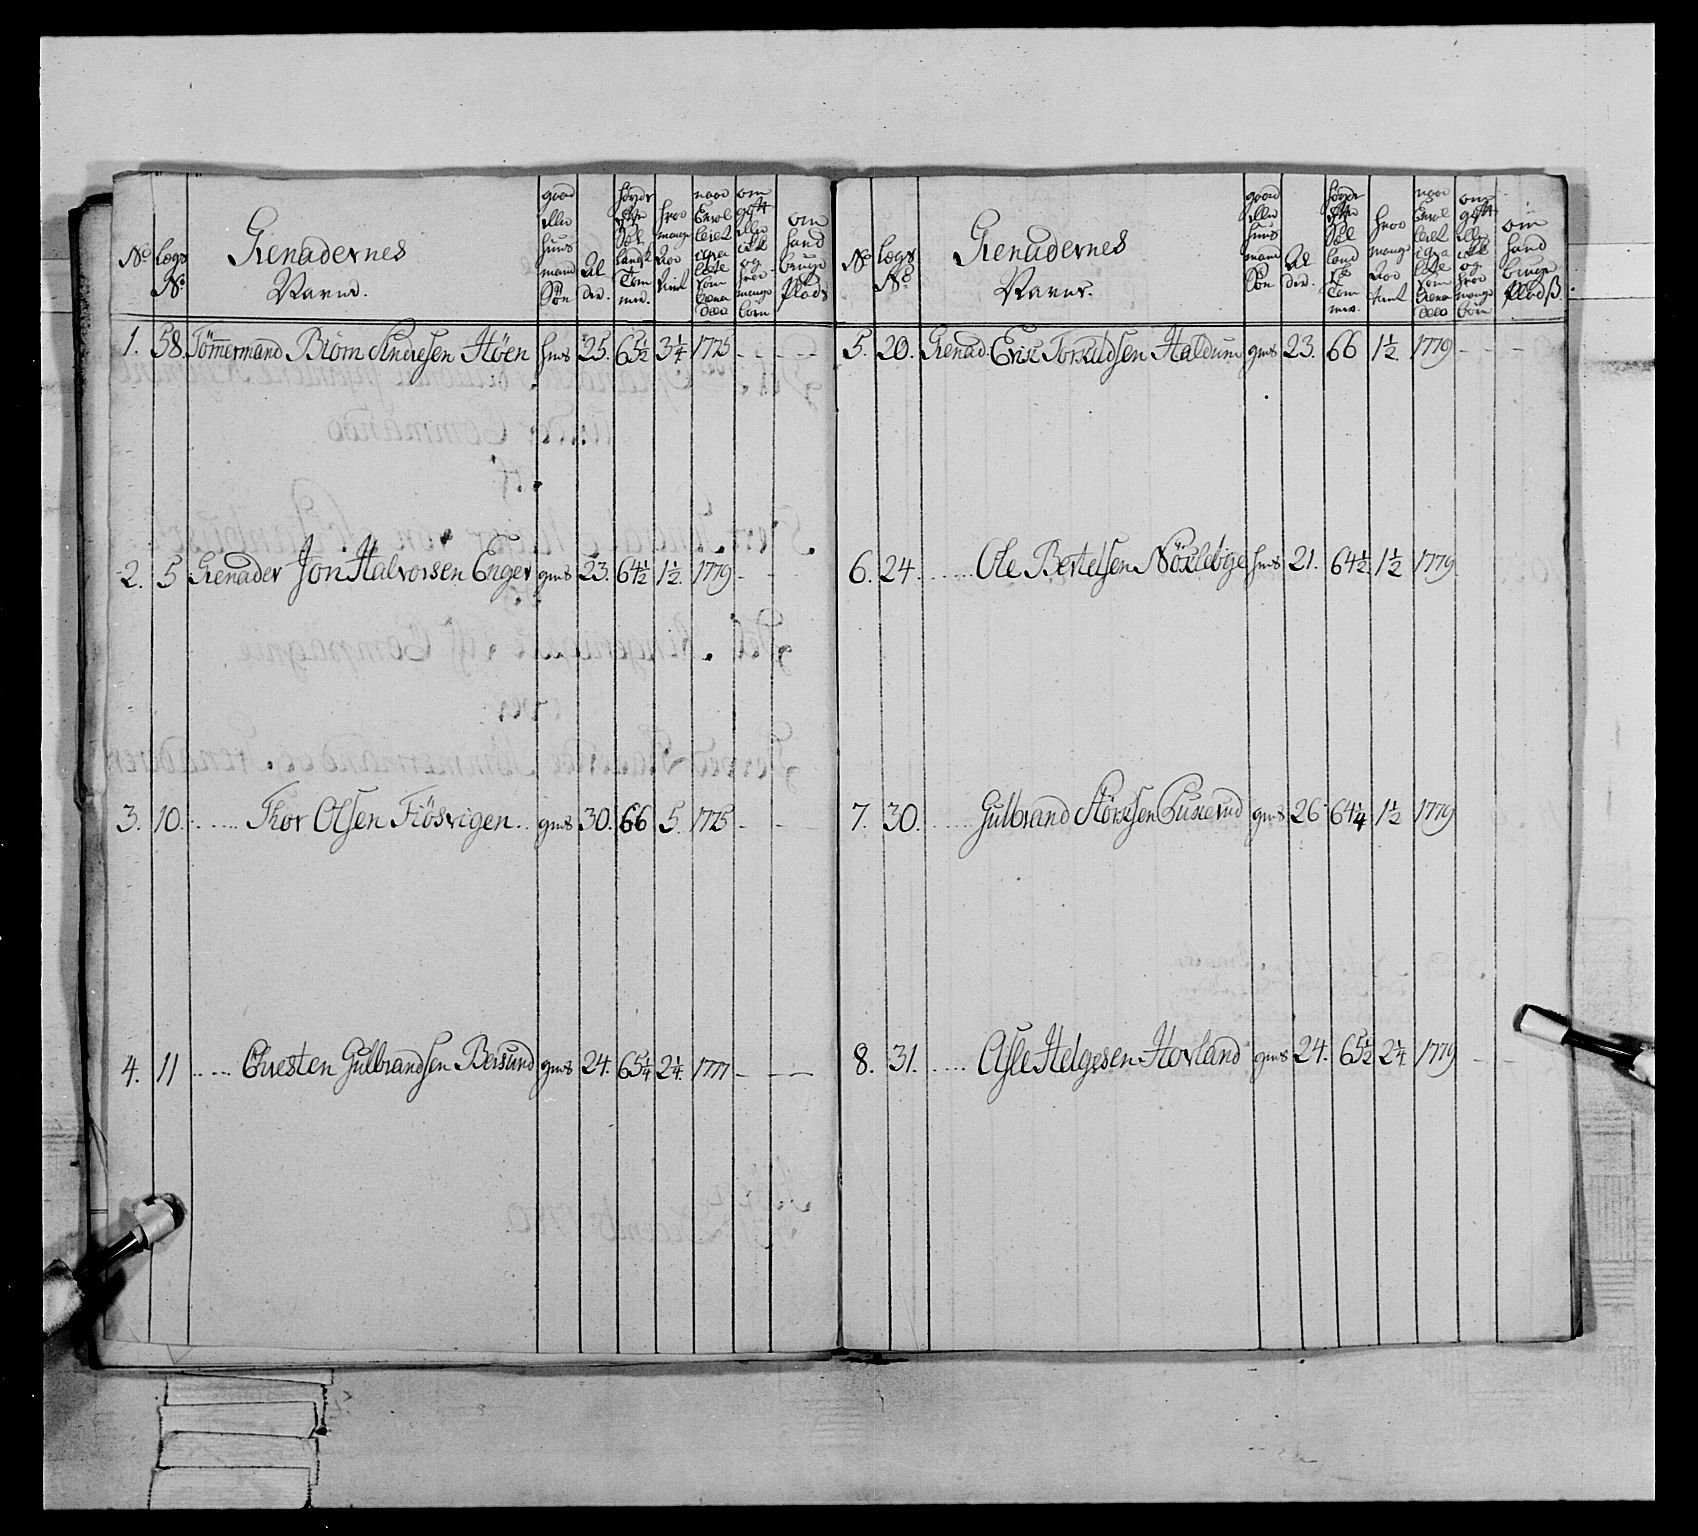 No
Lægs No
Grenadernes
Navne.
gaard eller huus mand Søn
Al der.
høyde efter Sæl landsk Tom mer.
hvor mange Aar tient
naar Enrol leret
om gift eller ikke og hvor mange børn
om hand bruge Plads
1. 58. Tömmermand Biörn Andresen Höen hms 25. 65½ 3¼ 1775 - - -
2. 5 Grenader Jon Halvorsen Enger gms 23. 64½ 1½. 1779 - -
3. 10. ...... Thor Olsen Fiösvigen.. gms 30. 66 5. 1775 - - -
4. 11 ...... Christen Gulbrandsen Bersund gms 24. 65¼ 2¼. 1777 - - -
No
Lægs No
Grenadernes
Navne.
gaard eller huus mand Søn
Al der.
høyde efter Sæl land sk Tom mer.
hvor mange Aar tient
naar Enrol leret
om gift eller ikke og hvor mange børn
om hand bruger Pladß
5. 20. Grenad Erik Torkildsen Haldum gms 23. 66 1½. 1779 - - -
6. 24. ...... Ole Bertelsen Nöklebye hms 21. 64½ 1½ 1779
7. 30. ...... Gulbrand Störksen Guserud gms 26 64¼ 1½ 1779
8. 31. ...... Asle Helgesen Hovland gms 24. 65½ 2¼ 1779 - -